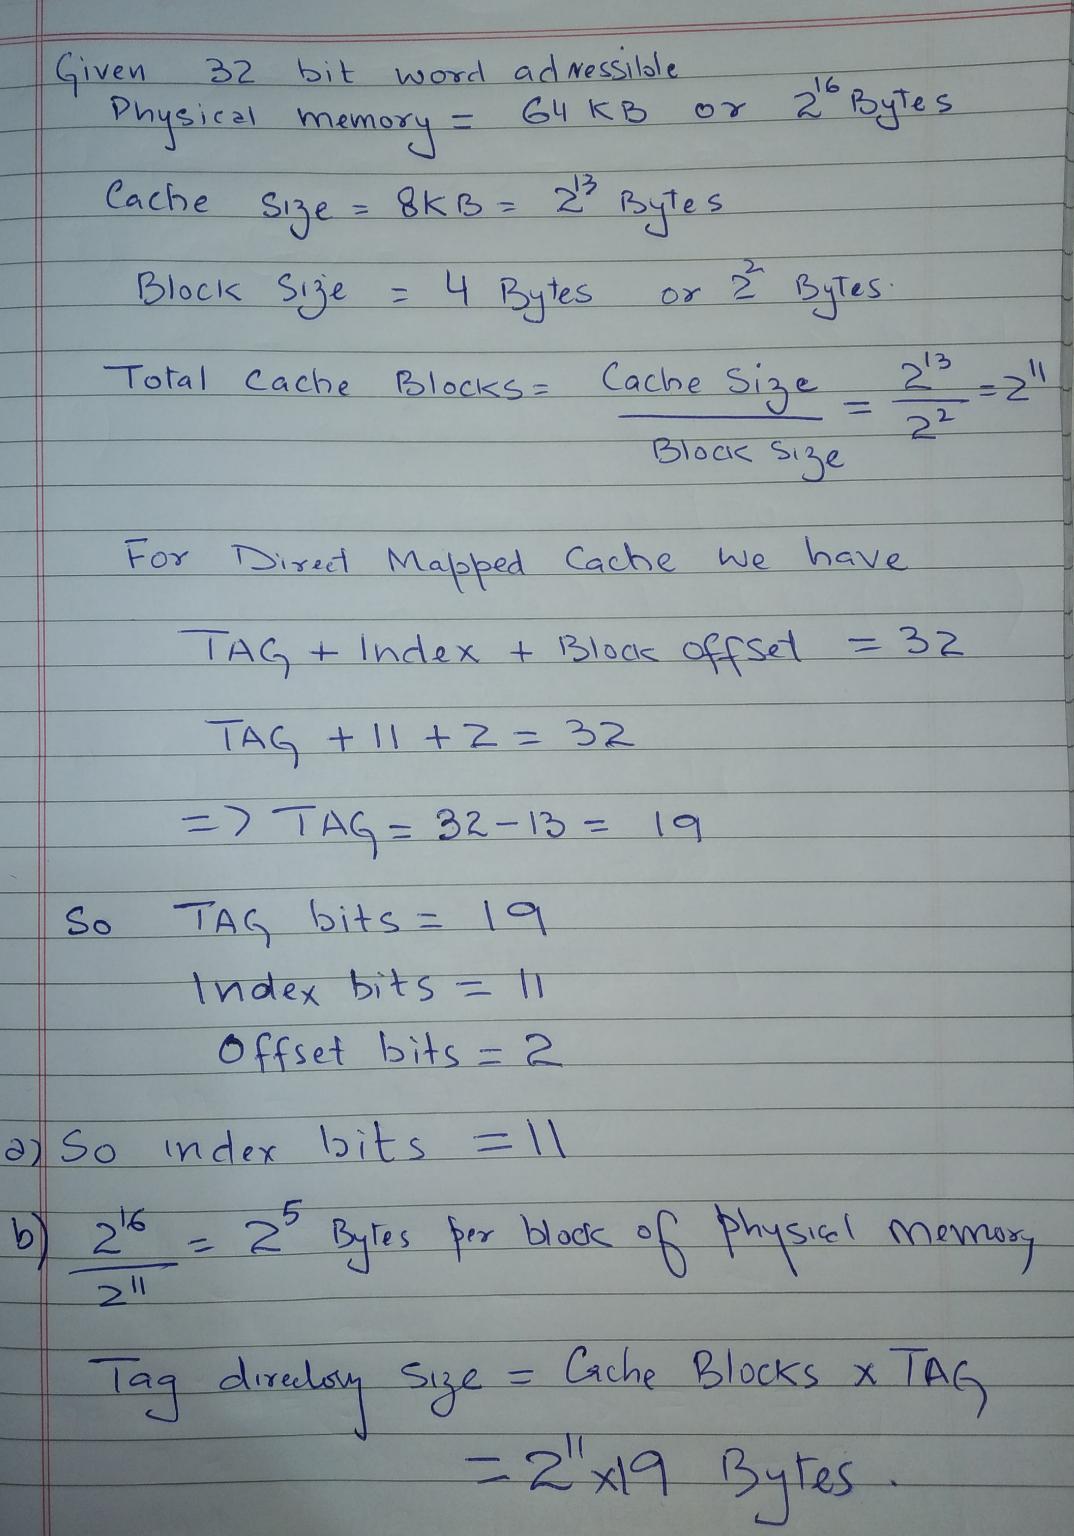 Given 32 bit word adressible
Physical memory = 64 KB or 2^16 Bytes
Cache Size = 8KB = 2^13 Bytes
Block Size = 4 Bytes or 2^2 Bytes.
Total Cache Blocks = Cache Size / Block Size = 2^13 / 2^2 = 2^11
For Direct Mapped Cache we have
TAG + Index + Block offset = 32
TAG + 11 + 2 = 32
=> TAG = 32 - 13 = 19
So TAG bits = 19
Index bits = 11
Offset bits = 2
a) So index bits = 11
b) 2^16 / 2^11 = 2^5 Bytes per block of physical memory
Tag directory Size = Cache Blocks x TAG
= 2^11 x 19 Bytes.